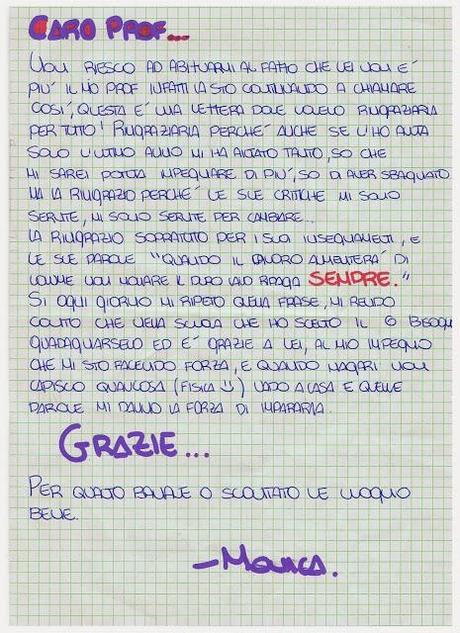 CARO PROF...
NON RIESCO AD ABITUARMI AL FATTO CHE LEI NON E'
PIU' IL MIO PROF INFATTI LA STO CONTINUANDO A CHIAMARE
COSI', QUESTA E' UNA LETTERA DOVE VOLEVO RINGRAZIARLA
PER TUTTO! RINGRAZIARLA PERCHE' ANCHE SE L'HO AVUTA
SOLO L'ULTIMO ANNO MI HA AIUTATO TANTO, SO CHE
MI SAREI POTUTA IMPEGNARE DI PIU', SO DI AVER SBAGLIATO
MA LA RINGRAZIO PERCHE' LE SUE CRITICHE MI SONO
SERVITE, MI SONO SERVITE PER CAMBIARE...
LA RINGRAZIO SOPRATUTTO PER I SUOI INSEGNAMENTI, E
LE SUE PAROLE "QUANDO IL LAVORO AUMENTERA' DI
VOLUME NON MOLLARE IL DURO LAVORO RIPAGA SEMPRE."
SI OGNI GIORNO MI RIPETO QUELLA FRASE, MI RENDO
CONTO CHE NELLA SCUOLA CHE HO SCELTO IL 6 BISOGNA
GUADAGNARSELO ED E' GRAZIE A LEI, AL MIO IMPEGNO
CHE MI STO FACENDO FORZA, E QUANDO MAGARI NON
CAPISCO QUALCOSA (FISICA :)) VADO A CASA E QUELLE
PAROLE MI DANNO LA FORZA DI IMPARARLA.
GRAZIE...
PER QUANTO BANALE O SCONTATO LE VOGLIO
BENE.
-MONICA.